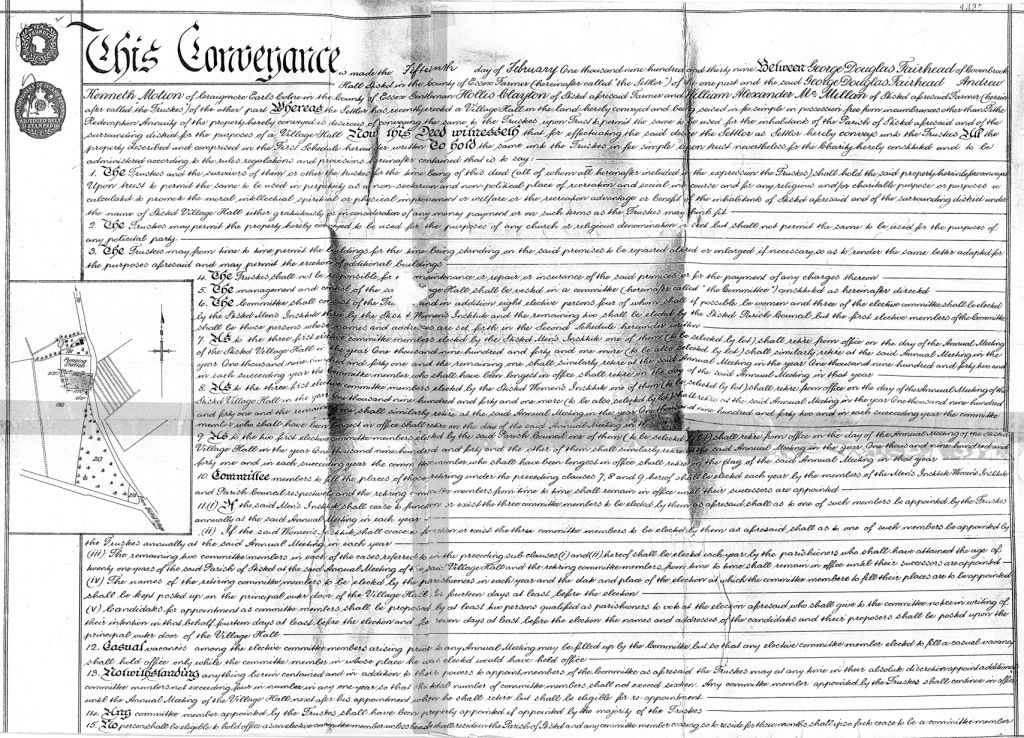 4325
This Conveyance is made the Fifteenth day of February One thousand nine hundred and thirty nine Between George Douglas Fairhead of Cornbrook
Hall Sisted in the County of Essex Farmer (hereinafter called "the Settlor") of the one part and the said George Douglas Fairhead Andrew
Kenneth Motion of Craigmore Earls Colne in the County of Essex Hollis Clayton of Sisted aforesaid Farmer and William Alexander Mc Millan of Sisted aforesaid Farmer (herein
after called "the Trustees") of the other part Whereas the Settlor has recently erected a Village Hall on the land hereby conveyed and is seised in fee simple in possession free from incumbrances other than Tithe
Redemption Annuity of the property hereby conveyed is desirous of conveying the same to the Trustees upon Trust to permit the same to be used for the inhabitants of the Parish of Sisted aforesaid and of the
surrounding district for the purposes of a Village Hall Now this Deed witnesseth that for effectuating the said desire the Settlor as Settlor hereby conveys unto the Trustees All the
property described and comprised in the First Schedule hereunder written To hold the same unto the Trustees in fee simple upon trust nevertheless for the Charity hereby constituted and to be
administered according to the rules regulations and provisions hereinafter contained that is to say:—
1. The Trustees and the survivors of them or other the trustees for the time being of this deed (all of whom are hereinafter included in the expression the Trustees) shall hold the said property hereinbefore conveyed
Upon trust to permit the same to be used in perpetuity as a non-sectarian and non-political place of recreation and social intercourse and for any religious and/or charitable purpose or purposes
calculated to promote the moral intellectual spiritual or physical improvement or welfare or the recreation advantage or benefit of the inhabitants of Sisted aforesaid and of the surrounding district under
the name of Sisted Village Hall either gratuitously or in consideration of any money payment or on such terms as the Trustees may think fit
2. The Trustees may permit the property hereby conveyed to be used for the purposes of any church or religious denomination or sect but shall not permit the same to be used for the purposes of
any political party
3. The Trustees may from time to time permit the buildings for the time being standing on the said premises to be repaired altered or enlarged if necessary so as to render the same better adapted for
the purposes aforesaid and may permit the erection of additional buildings
4. The Trustees shall not be responsible for the maintenance or repair or insurance of the said premises or for the payment of any charges thereon
5. The management and control of the said Village Hall shall be vested in a committee (hereinafter called "the Committee") constituted as hereinafter directed
6. The Committee shall consist of the Trustees and in addition eight elective persons four of whom shall if possible be women and three of the elective committee shall be elected
by the Sisted Men's Institute three by the Sisted Women's Institute and the remaining two shall be elected by the Sisted Parish Council but the first elective members of the Committee
shall be those persons whose names and addresses are set forth in the Second Schedule hereunder written
7. As to the three first elective committee members elected by the Sisted Men's Institute one of them (to be selected by lot) shall retire from office on the day of the Annual Meeting
of the Sisted Village Hall in the year One thousand nine hundred and forty and one more (to be also selected by lot) shall similarly retire at the said Annual Meeting in the
year One thousand nine hundred and forty one and the remaining one shall similarly retire at the said Annual Meeting in the year One thousand nine hundred and forty two and
in each succeeding year the committee member who shall have been longest in office shall retire on the day of the said Annual Meeting in that year
8. As to the three first elective committee members elected by the Sisted Women's Institute one of them (to be selected by lot) shall retire from office on the day of the Annual Meeting of the
Sisted Village Hall in the year One thousand nine hundred and forty and one more (to be also selected by lot) shall retire at the said Annual Meeting in the year One thousand nine hundred
and forty one and the remaining one shall similarly retire at the said Annual Meeting in the year One thousand nine hundred and forty two and in each succeeding year the committee
member who shall have been longest in office shall retire on the day of the said Annual Meeting in
9. As to the two first elective committee members elected by the said Parish Council one of them (to be selected by lot) shall retire from office on the day of the Annual Meeting of the Sisted
Village Hall in the year One thousand nine hundred and forty and the other of them shall similarly retire at the said Annual Meeting in the year One thousand nine hundred and
forty one and in each succeeding year the committee member who shall have been longest in office shall retire on the day of the said Annual Meeting in that year
10. Committee members to fill the places of those retiring under the preceding clauses 7, 8 and 9 hereof shall be elected each year by the members of the Men's Institute Women's Institute
and Parish Council respectively and the retiring committee members from time to time shall remain in office until their successors are appointed
11. (i) If the said Men's Institute shall cease to function or exist the three committee members to be elected by them as aforesaid shall as to one of such members be appointed by the Trustees
annually at the said Annual Meeting in each year
(ii) If the said Women's Institute shall cease to function or exist the three committee members to be elected by them as aforesaid shall as to one of such members be appointed by
the Trustees annually at the said Annual Meeting in each year
(iii) The remaining two committee members in each of the cases referred to in the preceding sub clauses (i) and (ii) hereof shall be elected each year by the parishioners who shall have attained the age of
twenty one years of the said Parish of Sisted at the said Annual Meeting of the said Village Hall and the retiring committee members from time to time shall remain in office until their successors are appointed
(iv) The names of the retiring committee members to be elected by the parishioners in each year and the date and place of the election at which the committee members to fill their places are to be appointed
shall be kept posted up on the principal outer door of the Village Hall for fourteen days at least before the election
(v) Candidates for appointment as committee members shall be proposed by at least two persons qualified as parishioners to vote at the election aforesaid who shall give to the committee notice in writing of
their intention in that behalf fourteen days at least before the election and for seven days at least before the election the names and addresses of the candidates and their proposers shall be posted upon the
principal outer door of the Village Hall
12. Casual vacancies among the elective committee members arising prior to any Annual Meeting may be filled up by the Committee but so that any elective committee member elected to fill a casual vacancy
shall hold office only while the committee member in whose place he was elected would have held office
13. Notwithstanding anything herein contained and in addition to their powers to appoint members of the Committee as aforesaid the Trustees may at any time in their absolute discretion appoint additional
committee members not exceeding four in number in any one year so that the total number of committee members shall not exceed sixteen. Any committee member appointed by the Trustees shall continue in office
until the Annual Meeting of the Village Hall next after his appointment when he shall retire but shall be eligible for re-appointment
14. Any committee member appointed by the Trustees shall have been properly appointed if appointed by the majority of the Trustees
15. No person shall be eligible to hold office as an elective committee member unless he or she shall reside in the Parish of Sisted and any committee member ceasing so to reside for three months shall ipso facto cease to be a committee member
182
213